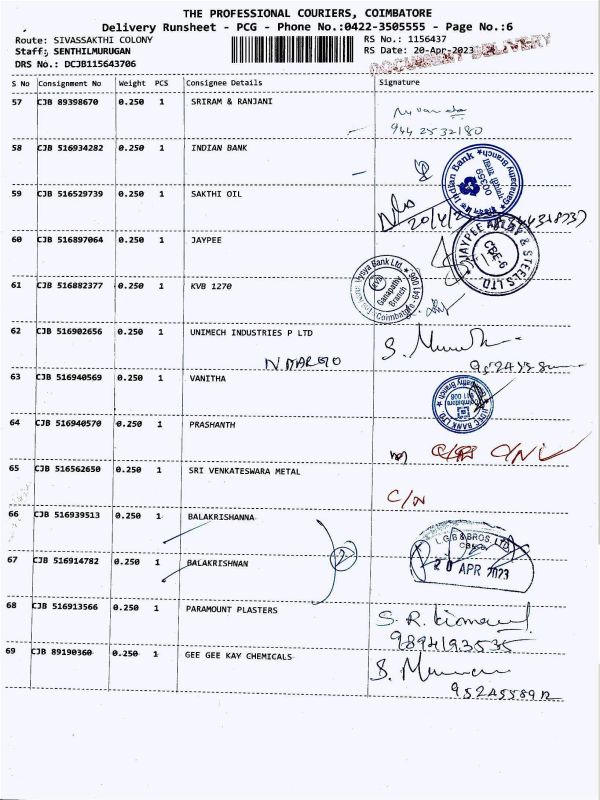 THE PROFESSIONAL COURIERS, COIMBATORE
Delivery Runsheet - PCG - Phone No.:0422-3505555 - Page No.:6
Route: SIVASSAKTHI COLONY RS No.: 1156437
Staff: SENTHILMURUGAN RS Date: 20-Apr-2023
DOCUMENT DELIVERY
DRS No.: DCJB115643706
S No Consignment No Weight PCS Consignee Details Signature
57 CJB 89398670 0.250 1 SRIRAM & RANJANI
9442532180
58 CJB 516934282 0.250 1 INDIAN BANK
Indian Bank Ganapathy Branch 00359
59 CJB 516529739 0.250 1 SAKTHI OIL
60 CJB 516897064 0.250 1 JAYPEE
JAYPEE ALLOY & STEELS LTD. CBE-6
61 CJB 516882377 0.250 1 KVB 1270
Vysya Bank Ltd. Ganapathy Branch Coimbatore - 641
62 CJB 516902656 0.250 1 UNIMECH INDUSTRIES P LTD
63 CJB 516940569 0.250 1 VANITHA
64 CJB 516940570 0.250 1 PRASHANTH
65 CJB 516562650 0.250 1 SRI VENKATESWARA METAL
C/N
66 CJB 516939513 0.250 1 BALAKRISHANNA
67 CJB 516914782 0.250 1 BALAKRISHNAN
2
L.G.B & BROS. LTD
20 APR 2023
68 CJB 516913566 0.250 1 PARAMOUNT PLASTERS
9894193535
69 CJB 89190360 0.250 1 GEE GEE KAY CHEMICALS